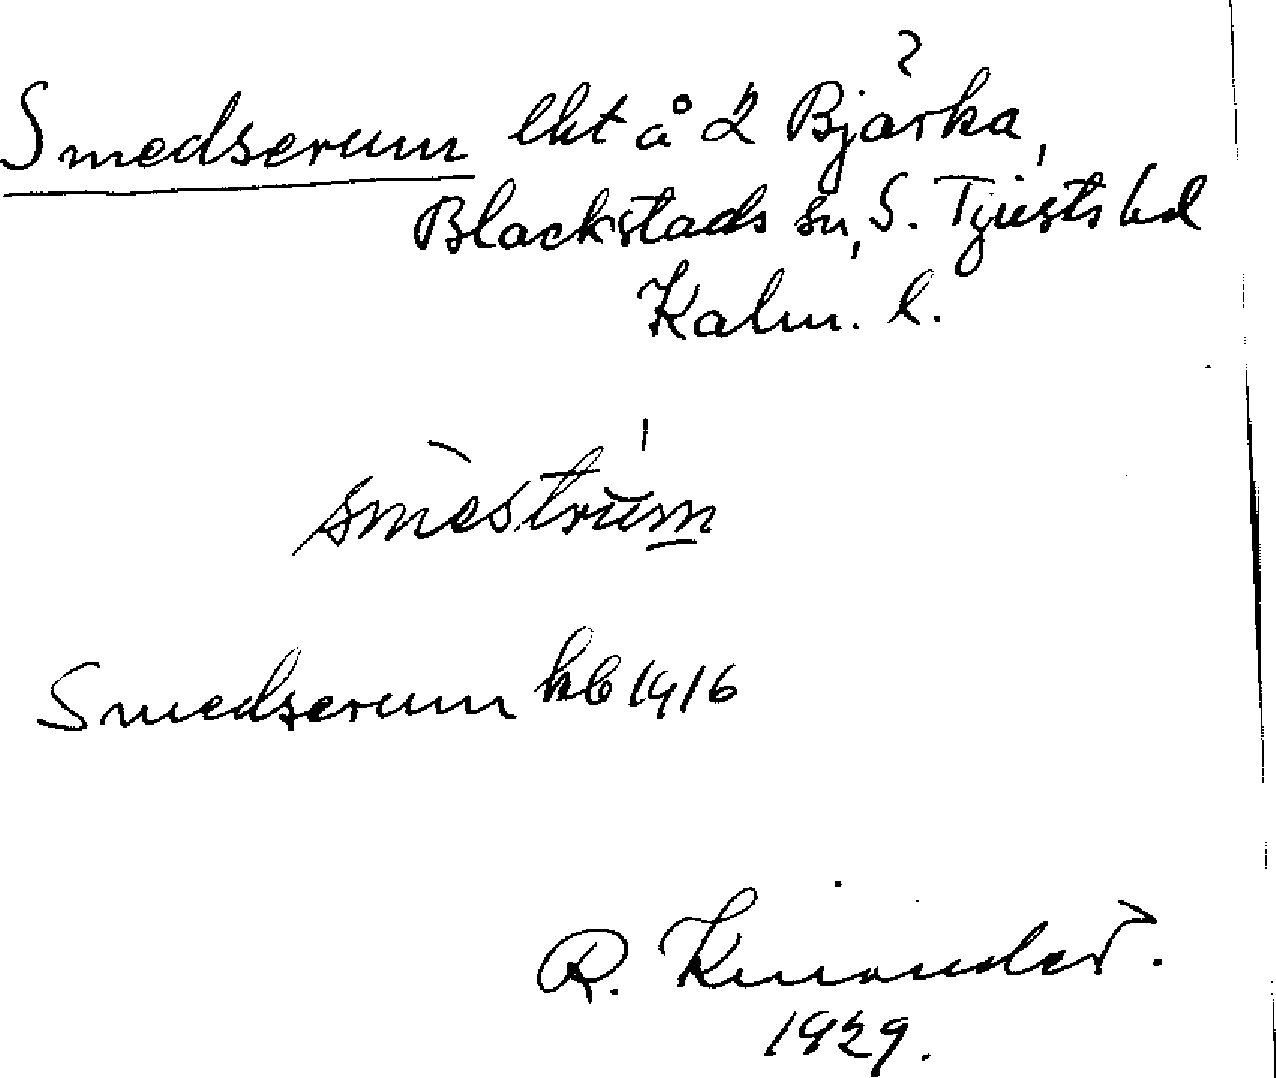 Smedserum lht å 2 Bjärka,
Blackstads sn, S. Tjusts hd
Kalm. l.
smèstrum
Smedserum kb 1916
R. Kinander.
1929.